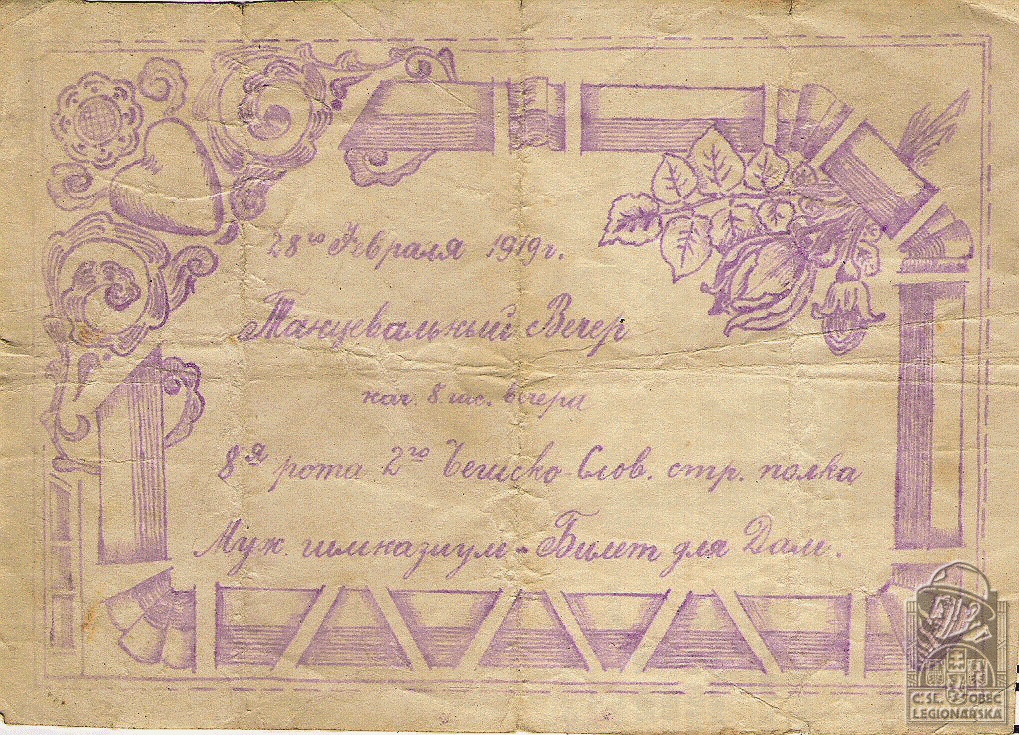 28го Февраля 1919г.
Танцевальный Вечер
нач. 8 час. вечера
8я рота 2го Чешско-Слов. стр. полка
Муж. гимназиум - Билет для Дам.
ČSL. OBEC
LEGIONÁŘSKÁ